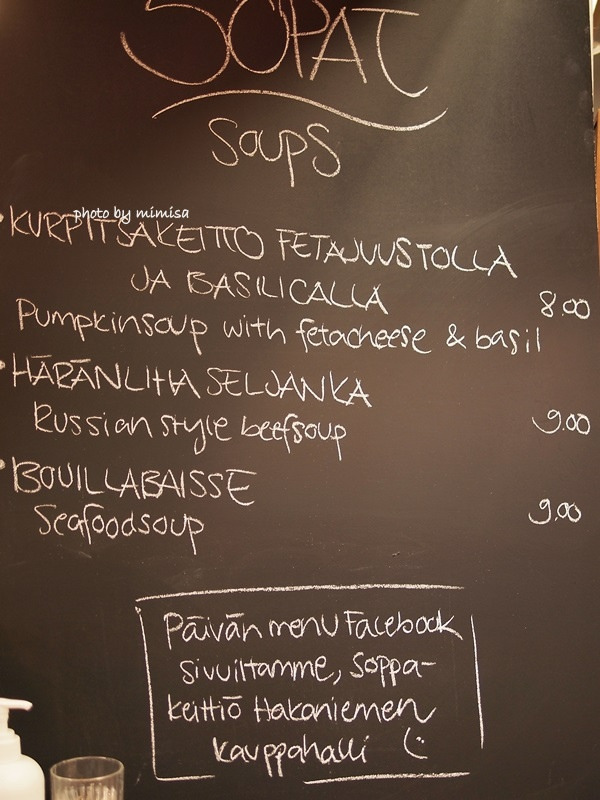 SOPAT
Soups
photo by mimisa
• KURPITSAKEITTO FETAJUUSTOLLA
JA BASILICALLA
8.00
Pumpkinsoup with fetacheese & basil
• HÄRÄNLIHA SELJANKA
Russian style beefsoup
9.00
• BOUILLABAISSE
Seafoodsoup
9.00
Päivän menu Facebook
sivuiltamme, Soppa-
keittiö Hakaniemen
kauppahalli :)